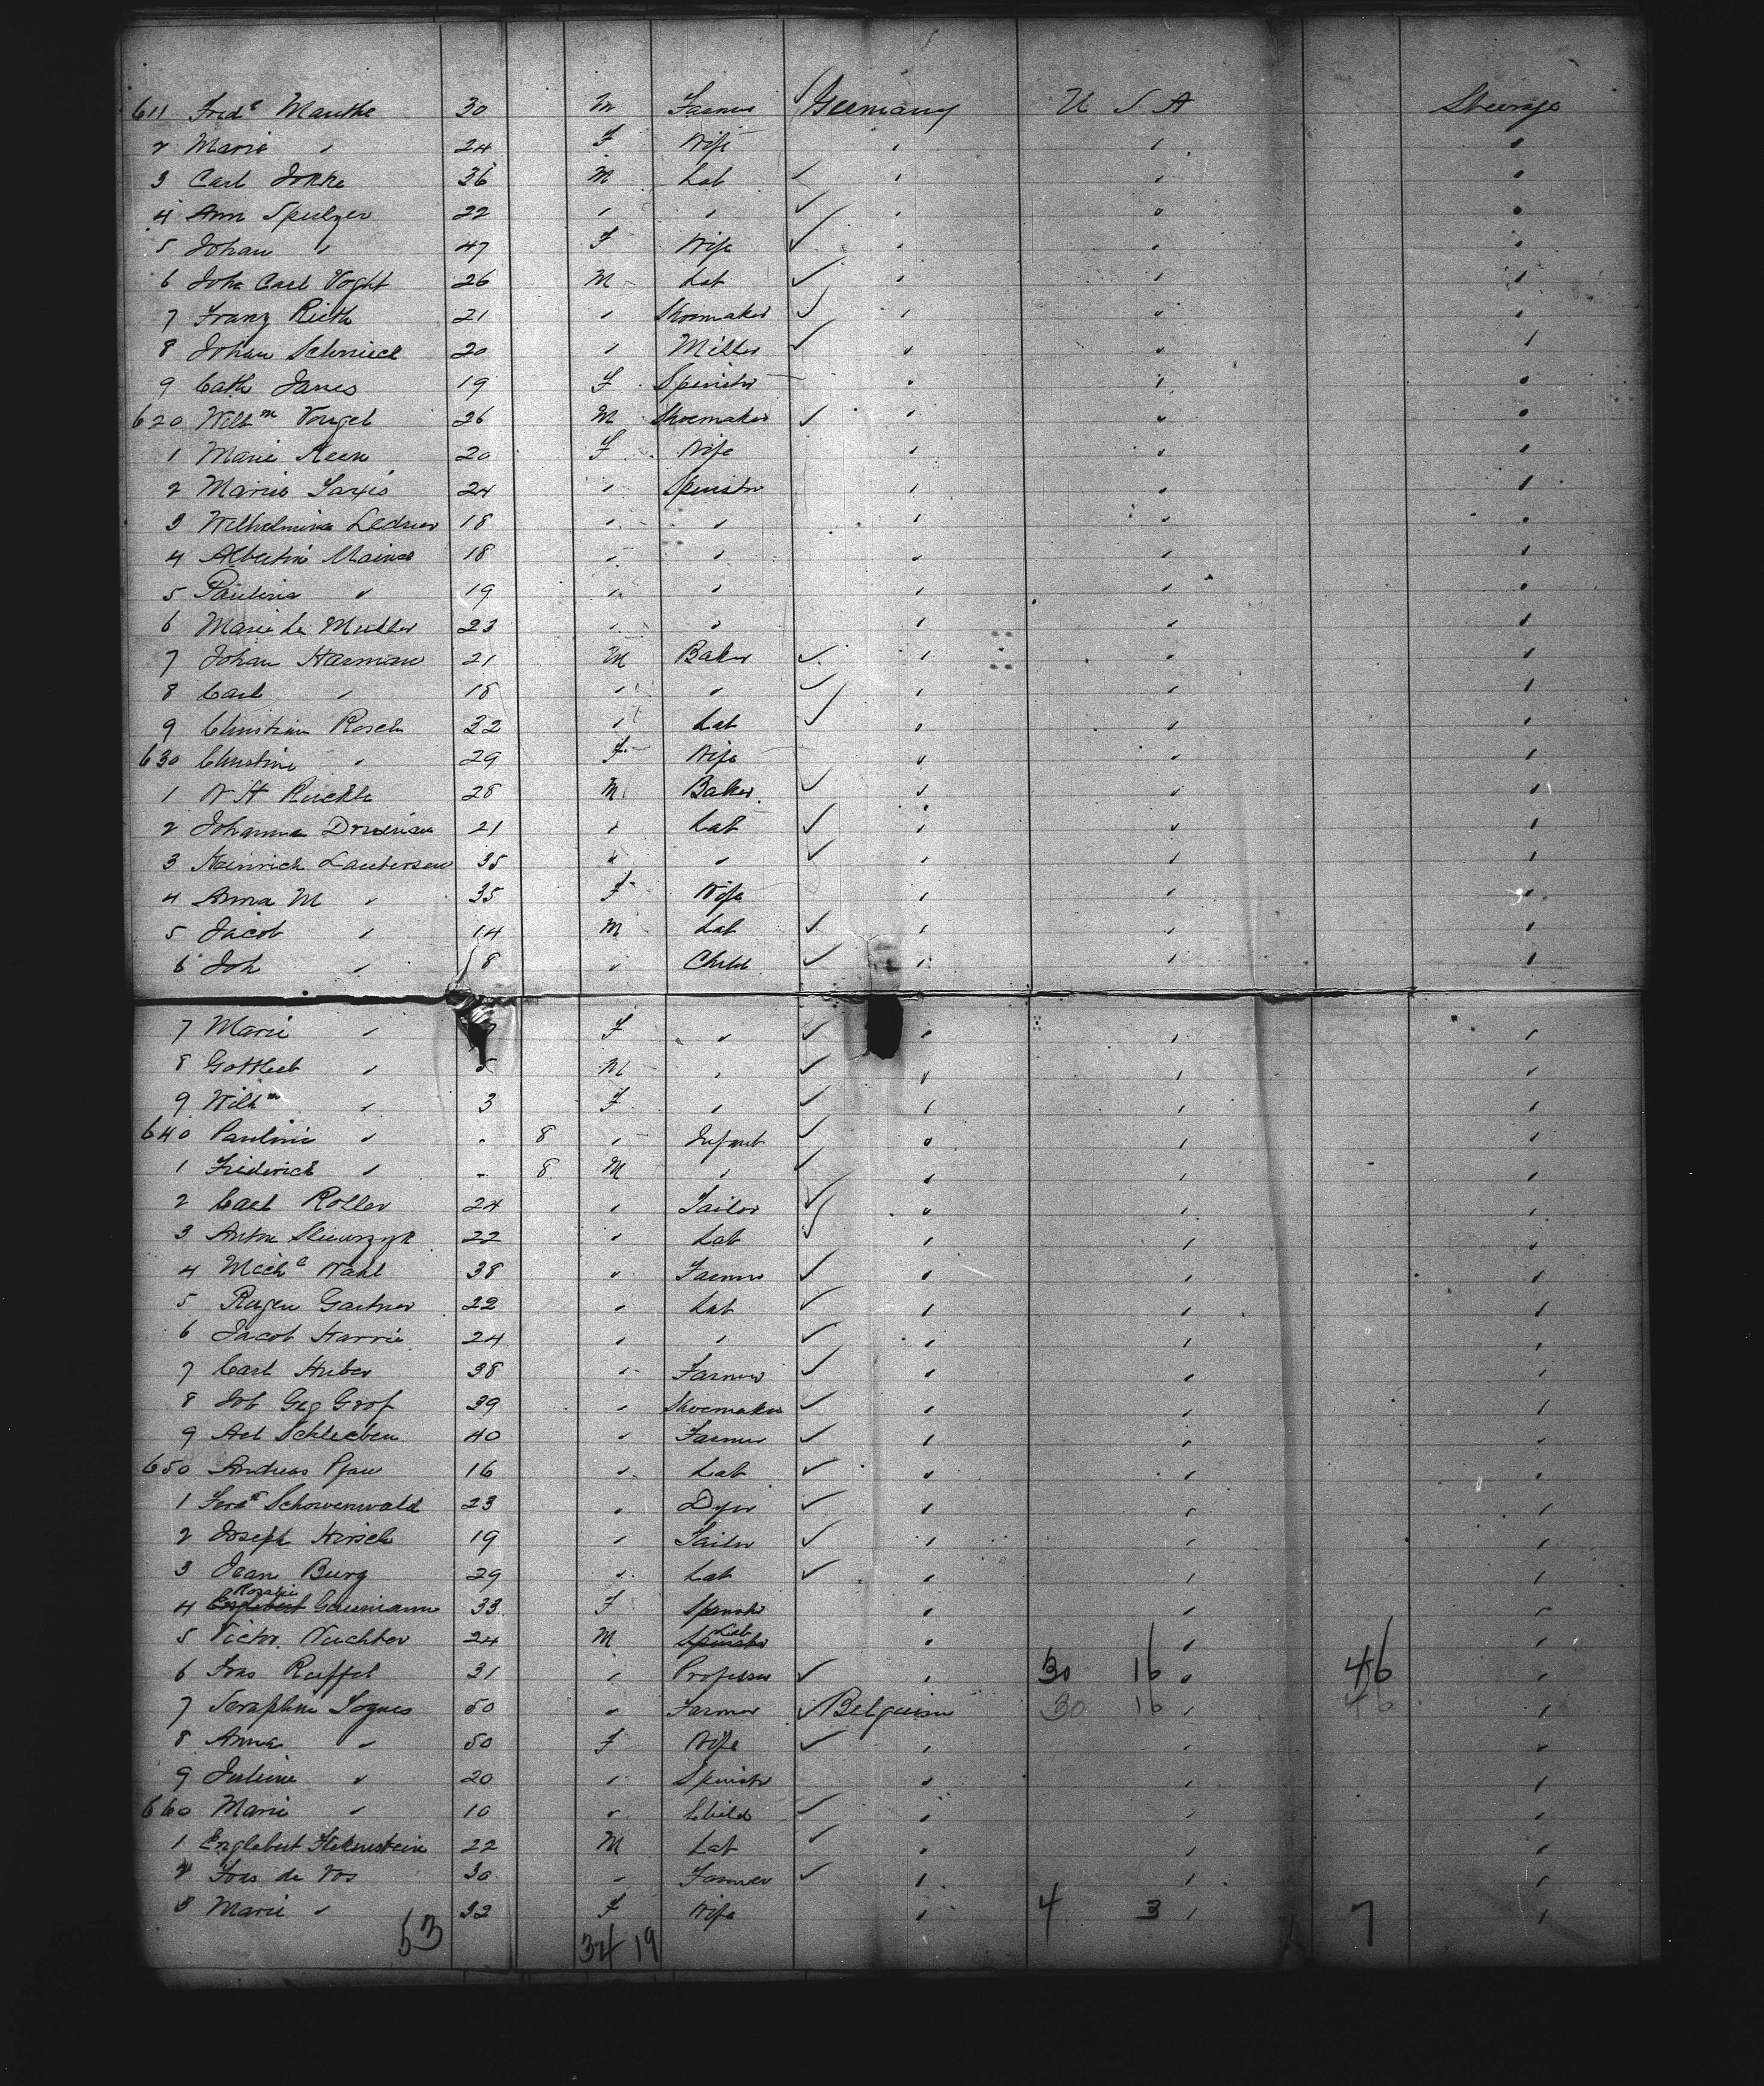 611 Fredk Mauthe 30 M Farmer Germany U S A Steerage
2 Marie " 24 F Wife " " "
3 Carl Jokke 36 M Lab " " "
4 Ann Spulzer 22 " " " " "
5 Johan " 47 F Wife " " "
6 Joh Carl Voght 26 M Lab " " "
7 Franz Rieth 21 " Shoemaker " " "
8 Johan Schmied 20 " Miller " " "
9 Cath Janes 19 F Spinster " " "
620 Wilhm Vongel 26 M Shoemaker " " "
1 Marie Keen 20 F Wife " " "
2 Marie Saxis 24 " Spinster " " "
3 Wilhelmina Ledrer 18 " " " " "
4 Albertine Mainco 18 " " " " "
5 Paulina " 19 " " " " "
6 Marie La Muller 23 " " " " "
7 Johan Harman 21 M Baker " " "
8 Carl " 18 " " " " "
9 Christian Rosch 32 " Lab " " "
630 Christine " 29 F Wife " " "
1 W H Ruckle 28 M Baker " " "
2 Johanna 21 " Lab " " "
3 Heinrich Lautersen 35 " " " " "
4 Anna M " 35 F Wife " " "
5 Jacob " 14 M Lab " " "
6 Joh " 8 " Child " " "
7 Marie " 7 F " " " "
8 Gottlieb " 5 M " " " "
9 Wilhm " 3 F " " " "
640 Pauline " - 8 " Infant " " "
1 Friderick " - 8 M " " " "
2 Carl Roller 24 " Tailor " " "
3 Anton 22 " Lab " " "
4 Michl Wahl 38 " Farmer " " "
5 Rugen Gartner 22 " Lab " " "
6 Jacob Harrie 24 " " " " "
7 Carl Huber 38 " Farmer " " "
8 Joh Geg Grof 39 " Shoemaker " " "
9 Ad Schleeben 40 " Farmer " " "
650 Andreas Pfau 16 " Lab " " "
1 Ferd Schowenwald 23 " Dyer " " "
2 Joseph Hirsch 19 " Tailor " " "
3 Jean Burg 29 " Lab " " "
4 Englebert Rosalie Gausmann 33 F Spinster " " "
5 Victor Nuchter 24 M Spinster Lab " " "
6 Fras Ruffel 31 " Professor " 30 16 " 46 "
7 Seraphine Sognes 50 " Farmer Belguim 30 16 " 46 "
8 Anna " 50 F Wife " " "
9 Juliene " 20 " Spinster " " "
660 Marie " 10 " Child " " "
1 Englebert Flokenstein 22 M Lab " " "
2 Fras de Vos 30 " Farmer " " "
3 Marie " 32 F Wife " 4 3 " 7 "
53 34 19